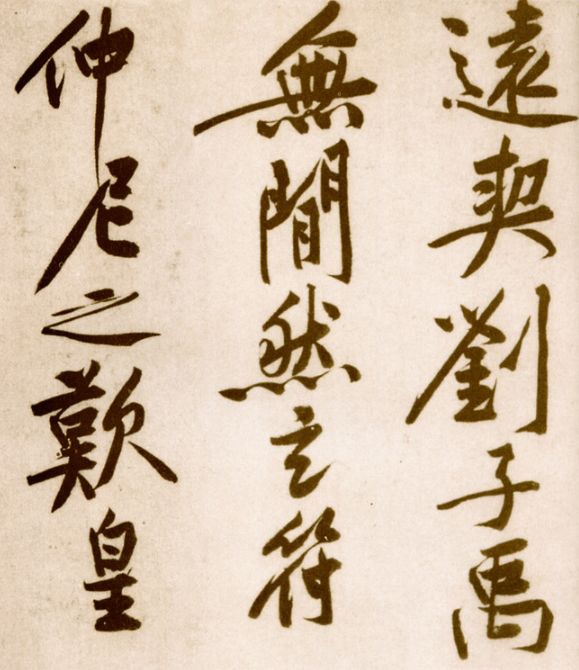 遠契劉子禹
無閒然之符
仲尼之歎皇